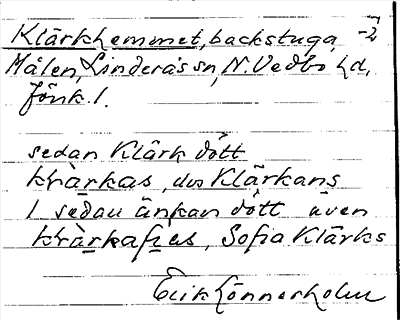 Klärkhemmet, backstuga, -2
Målen, Linderås sn, N. Vedbo hd,
Jönk. l.
sedan Klärk dött
Klärkans
I sedan änkan dött även
Sofia Klärks
Erik Lönnerholm